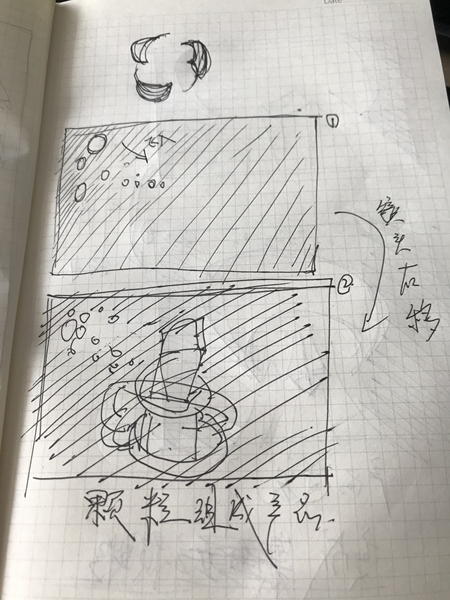 Date
①
飞下
镜头右移
②
颗粒组成产品.